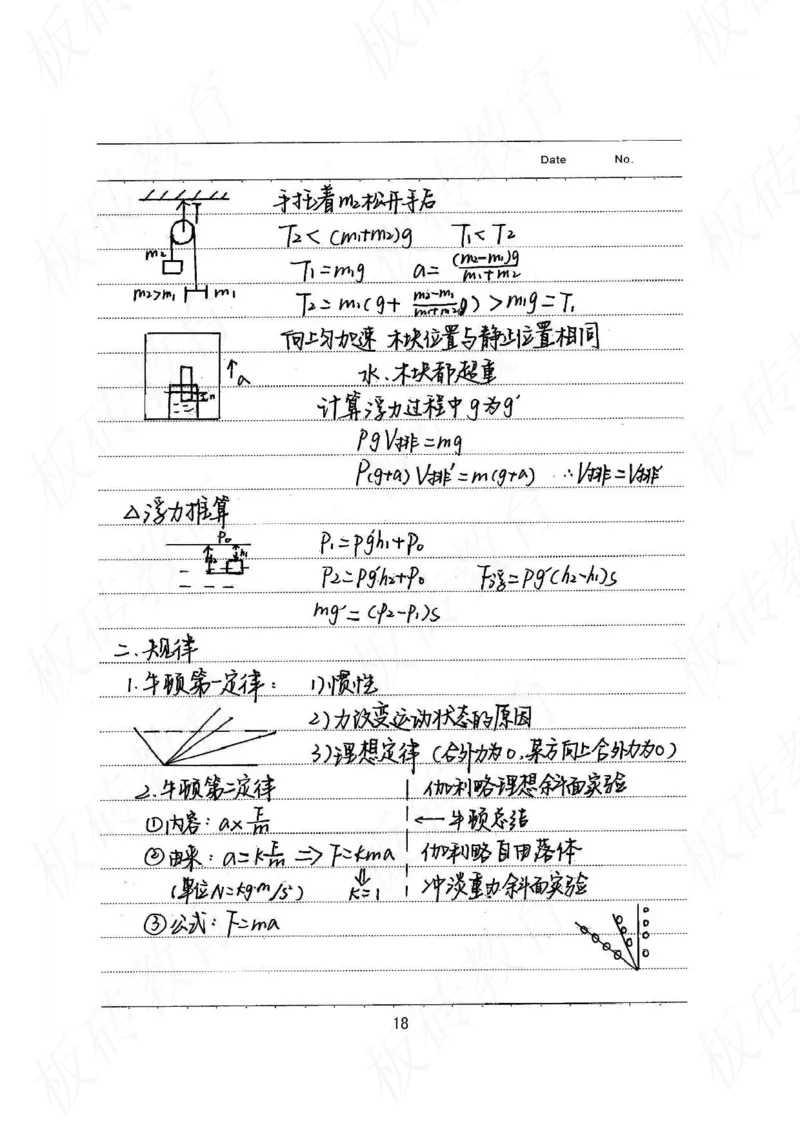 Date No.
手托着m₂松开手后
T
T₂<(m₁+m₂)g T₁<T₂
m₂
T₁=m₁g a=(m₂-m₁)g/(m₁+m₂)
m₂>m₁ m₁
T₂=m₁(g+(m₂-m₁)/(m₁+m₂)g)>m₁g=T₁
向上匀加速 木块位置与静止位置相同
a
水、木块都超重
计算浮力过程中g为g′
ρgV排=mg
ρ(g+a)V排′=m(g+a) ∴V排=V排′
△浮力推算
P₀
h₂ h₁
P₁=ρg′h₁+P₀
P₂=ρg′h₂+P₀ F浮=ρg′(h₂-h₁)s
mg′=(P₂-P₁)s
二、规律
1.牛顿第一定律: 1)惯性
2)力改变运动状态的原因
3)理想定律(合外力为0,某方向上合外力为0)
2.牛顿第二定律 伽利略理想斜面实验
①内容:a∝F/m ←牛顿总结
②由来:a=kF/m => F=kma 伽利略自由落体
(单位N=kg·m/s²) ⇓ k=1 冲淡重力斜面实验
③公式:F=ma
18
板砖教育